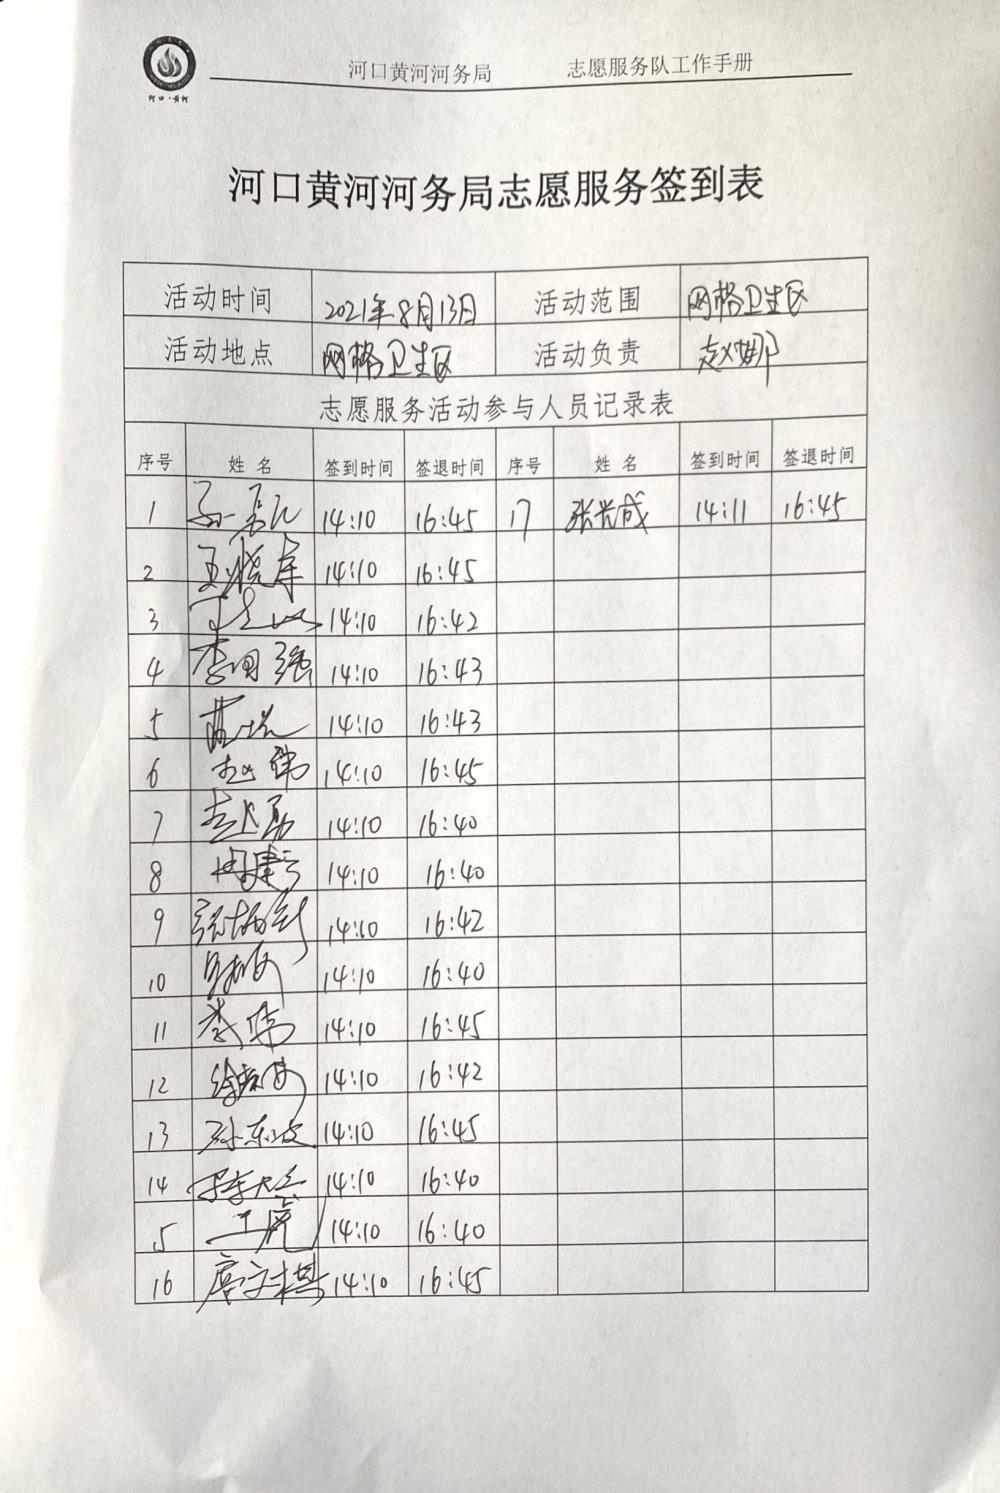 河口黄河河务局 志愿服务队工作手册
河口·黄河
河口黄河河务局志愿服务签到表
活动时间 2021年8月13日 活动范围 网格卫生区
活动地点 网格卫生区 活动负责 赵娜
志愿服务活动参与人员记录表
序号 姓名 签到时间 签退时间 序号 姓名 签到时间 签退时间
1 14:10 16:45 17 张光成 14:11 16:45
2 王晓库 14:10 16:45
3 14:10 16:42
4 李国强 14:10 16:43
5 14:10 16:43
6 赵伟 14:10 16:45
7 赵勇 14:10 16:40
8 周建 14:10 16:40
9 14:10 16:42
10 14:10 16:40
11 李伟 14:10 16:45
12 14:10 16:42
13 孙东波 14:10 16:45
14 14:10 16:40
5 王虎 14:10 16:40
16 14:10 16:45